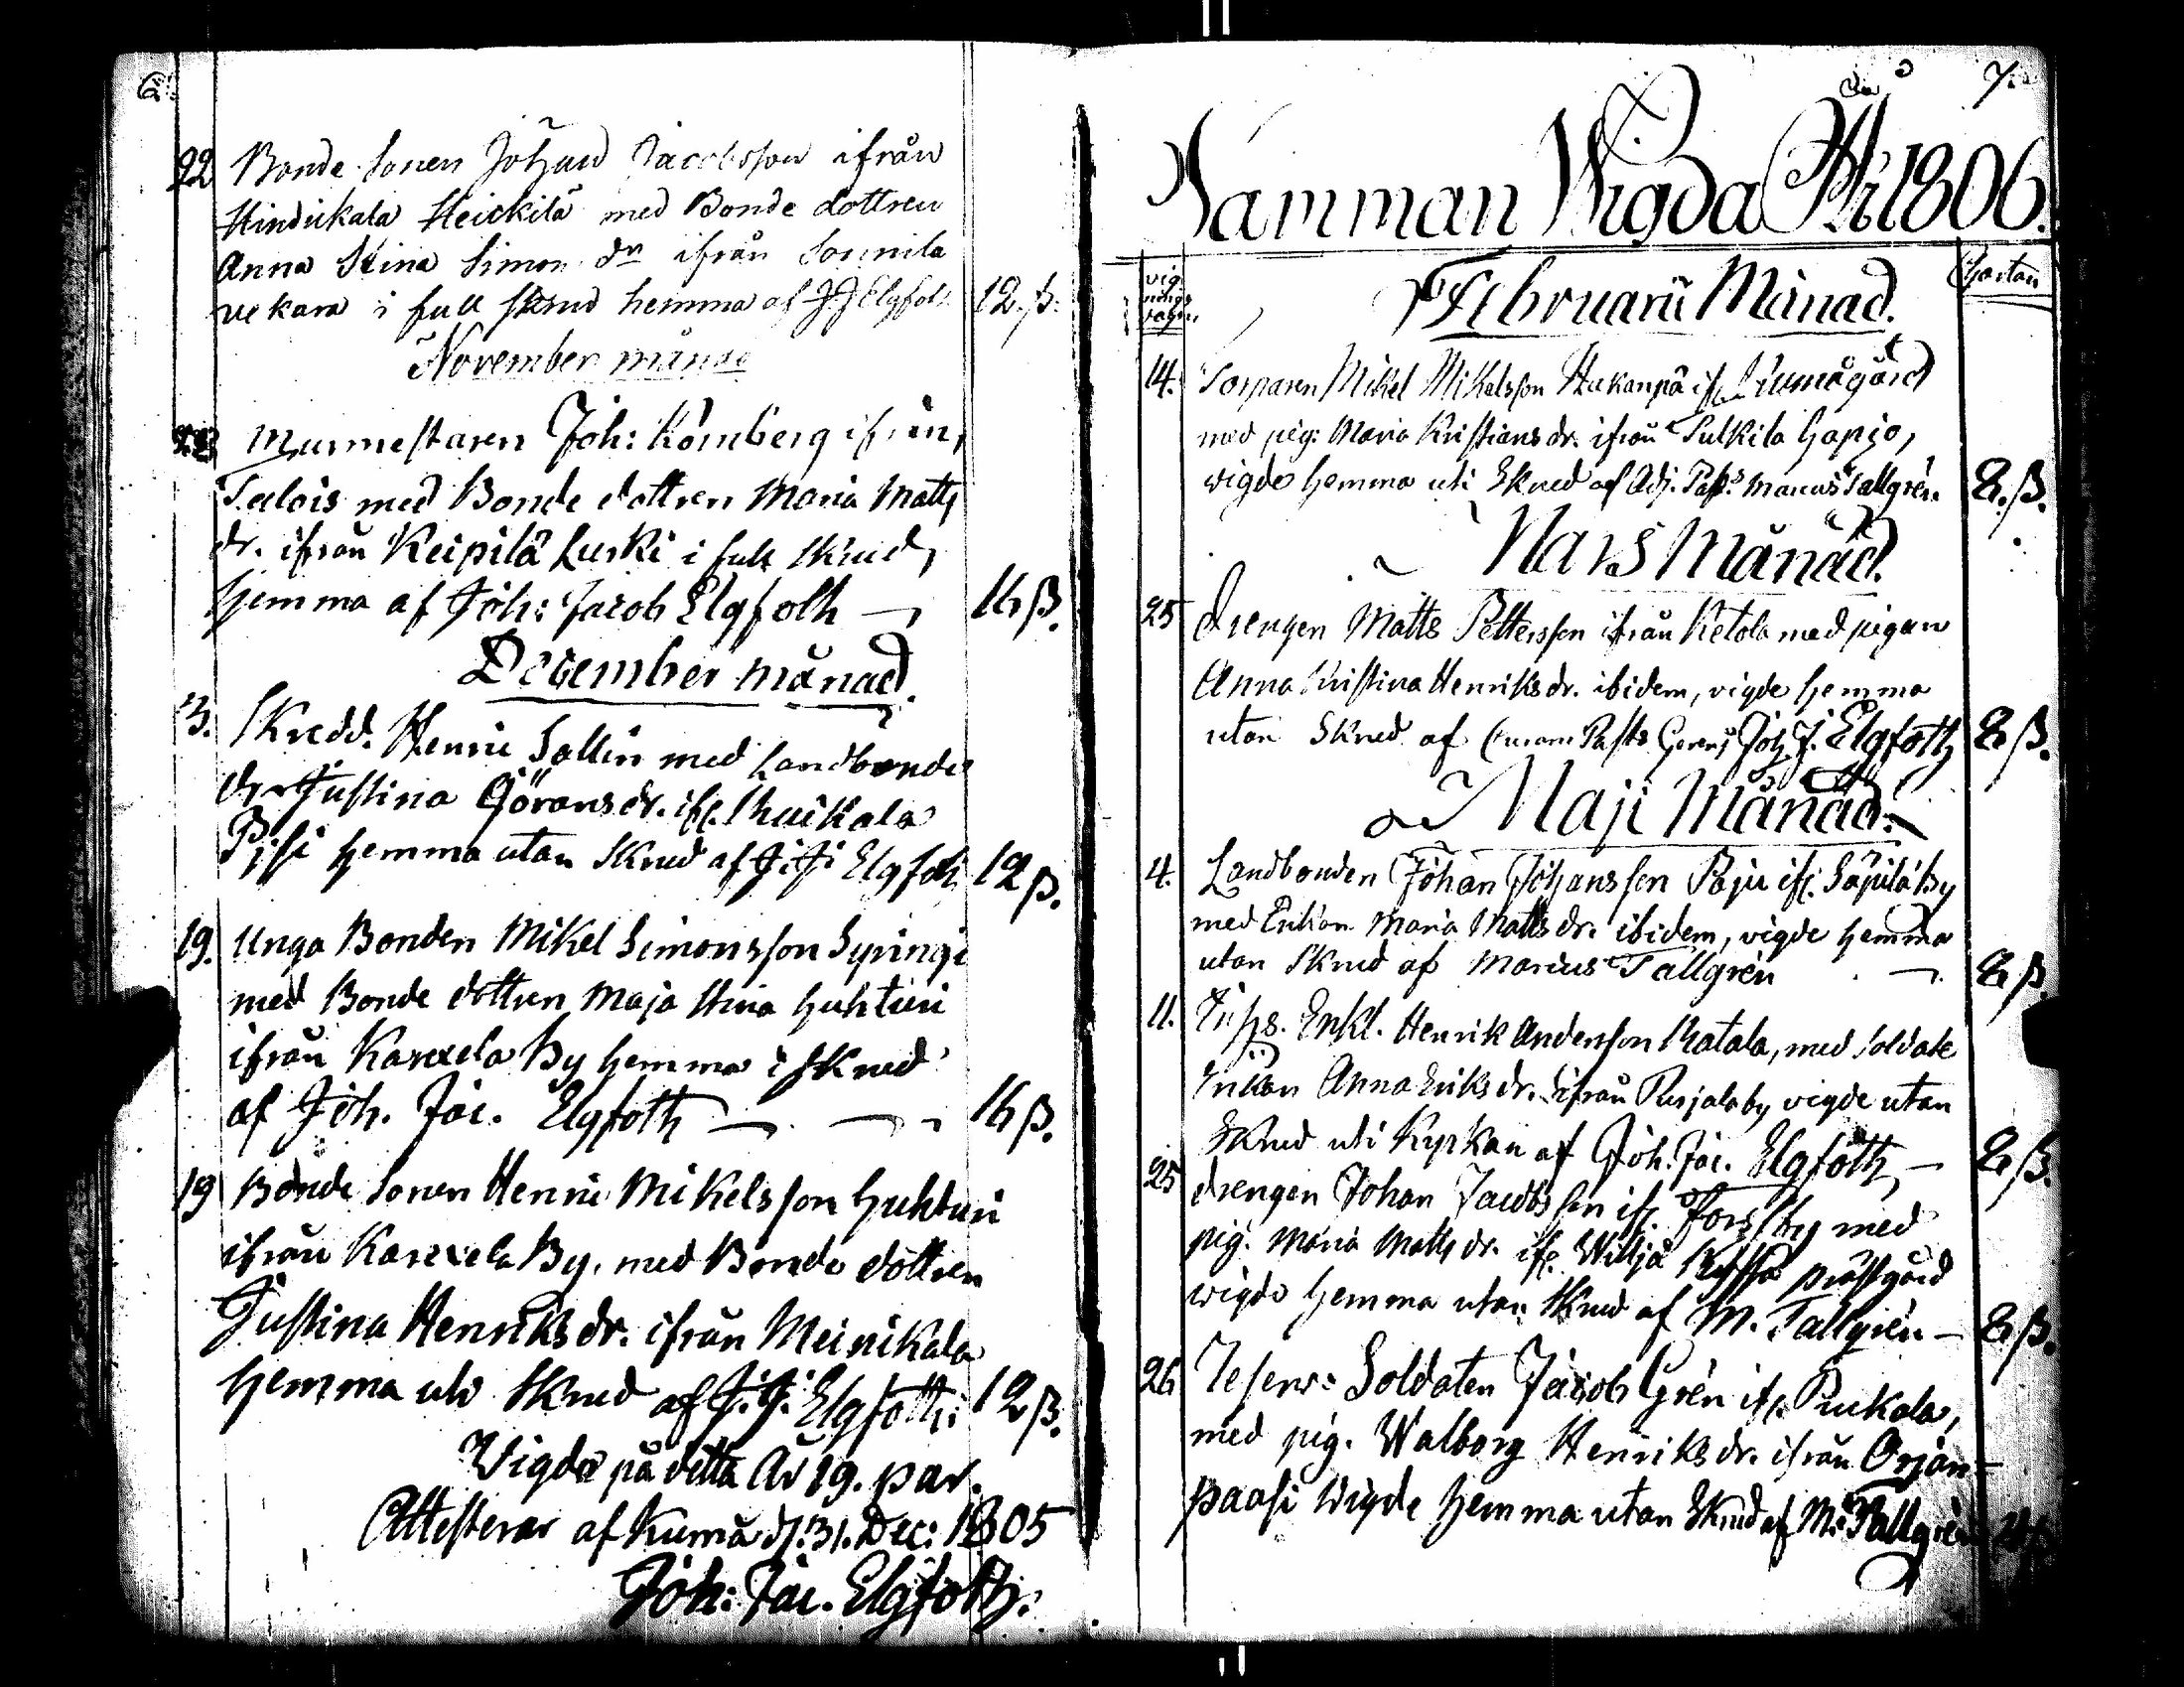 6.
22 Bonde Sonen Johan Jacobsson ifrån
Hindukala Heickilä med Bonde dottren
Anna Stina Simonsdr ifrån Sonnila
i full skrud hemma af JJ Elgfoth 12 ß.
November månad
Murmestaren Joh: Körnberg ifrån,
med Bonde dottren Maria Matts
dr. ifrån Keipilä Luski i full skrud,
hemma af Joh: Jacob Elgfoth — 16 ß.
December månad.
3. Skredd. Henric Sallin med Landbonde
dr Justina Göransdr. ifr.
hemma utan Skrud af J: J: Elgfoth 12 ß.
19. Unga Bonden Mikel Simonsson Syringi
med Bonde dottren Maja Stina Huhturi
ifrån Karexela By hemma i skrud
af Joh. Jac. Elgfoth — 16 ß.
19 Bonde Sonen Henric Mikelsson Huhturi
ifrån Karexela By, med Bonde dottren
Justina Henriksdr. ifrån Meinikala
hemma uti Skrud af J. J. Elgfoth: 12 ß.
Vigde på detta År 19. par.
Attesterar af Kumå d: 31. Dec: 1805
Joh: Jac. Elgfoth.
7.
Samman Wigda År 1806.
vig-
nings
dagar.
Februarii Månad.
14. Torparen Mikel Mikelsson Hakanpä ifr.
med pig: Maria Kristiansdr. ifrån Sulkila Harjo,
vigde hemma uti Skrud af Adj. Past: Marcus Tallgrén. 8. ß.
Mars Månad.
25 Drengen Matts Pettersson ifrån Ketola med pigan
Anna Kristina Henriksdr. ibidem, vigde hemma
utan Skrud af Joh J. Elgfoth 8 ß.
Maji Månad.
4. Landbonden Johan Johansson Paju ifr. Säpilä By
med Enkan Maria Mattsdr. ibidem, vigde hemma
utan Skrud af Marcus Tallgrén — 8 ß.
11. Enkl. Henrik Andersson Ratala, med Soldate
Enkan Anna Eriksdr. ifrån Pirjala by vigde utan
Skrud uti Kyrkan af Joh. Jac. Elgfoth, — 8 ß.
25 Drengen Johan Jacobsson ifr. Forsby med
pig. Maria Mattsdr. ifr. prästgård
vigde hemma utan Skrud af M. Tallgrén — 8 ß.
26 Soldaten Jacob Grén ifr. Puckala,
med pig. Walborg Henriksdr. ifrån Orjan-
paasi vigde hemma utan Skrud af M. Tallgrén